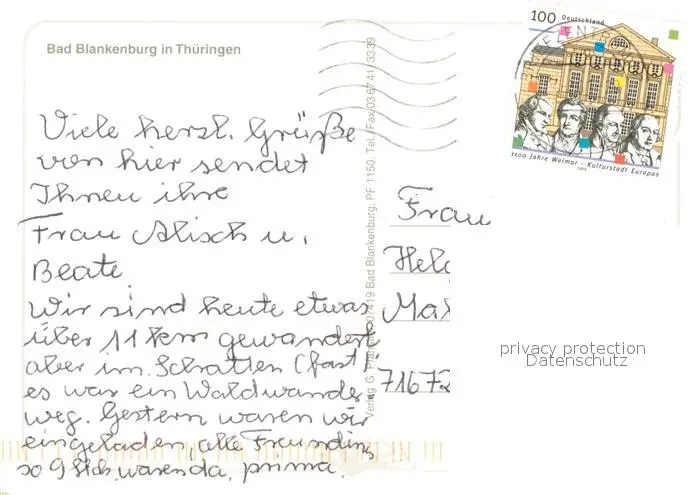 100 Deutschland
1100 Jahre Weimar - Kulturstadt Europas
1999
Bad Blankenburg in Thüringen
Viele herzl. Grüße
von hier sendet
Ihnen ihre
Frau Alisch u.
Beate.
Wir sind heute etwas
über 11 km gewandert
aber im Schatten (fast)
es war ein Waldwander
weg. Gestern waren wir
eingeladen, alle Freundin
so 9 Stck. waren da, prima.
Verlag G. 07419 Bad Blankenburg, PF 1150, Tel./Fax/036741/3339
Frau
Hel
Ma
7167
privacy protection
Datenschutz